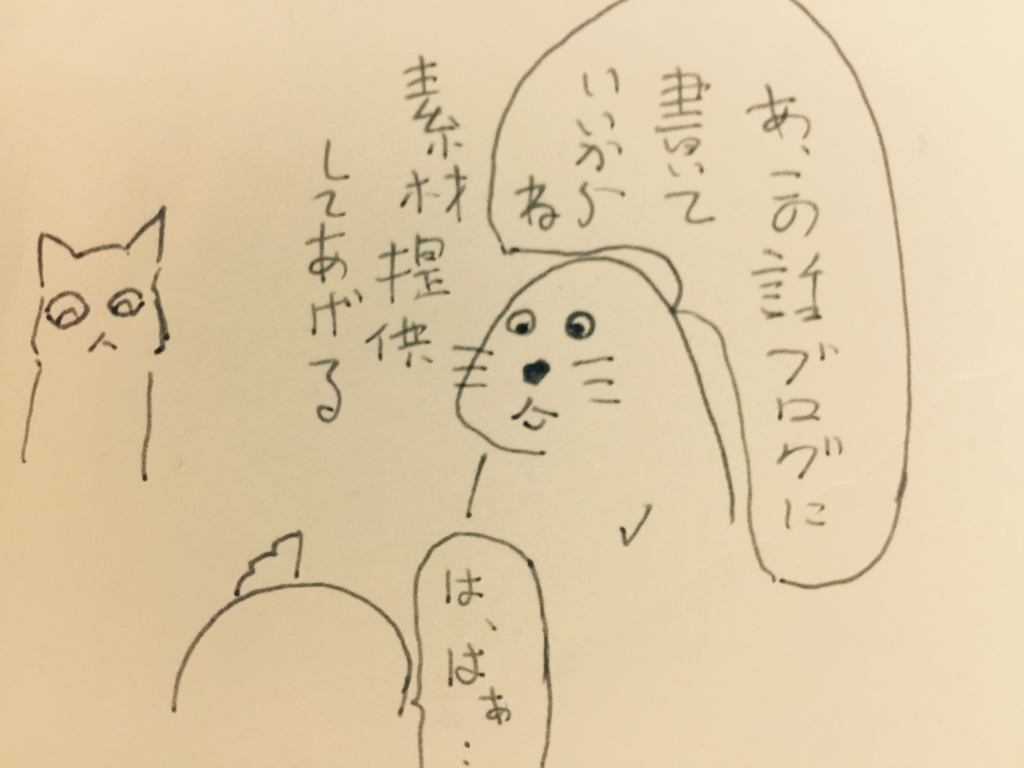 あ、この話ブログに
書いて
いいから
ね
素材提供
してあげる
は、はぁ…